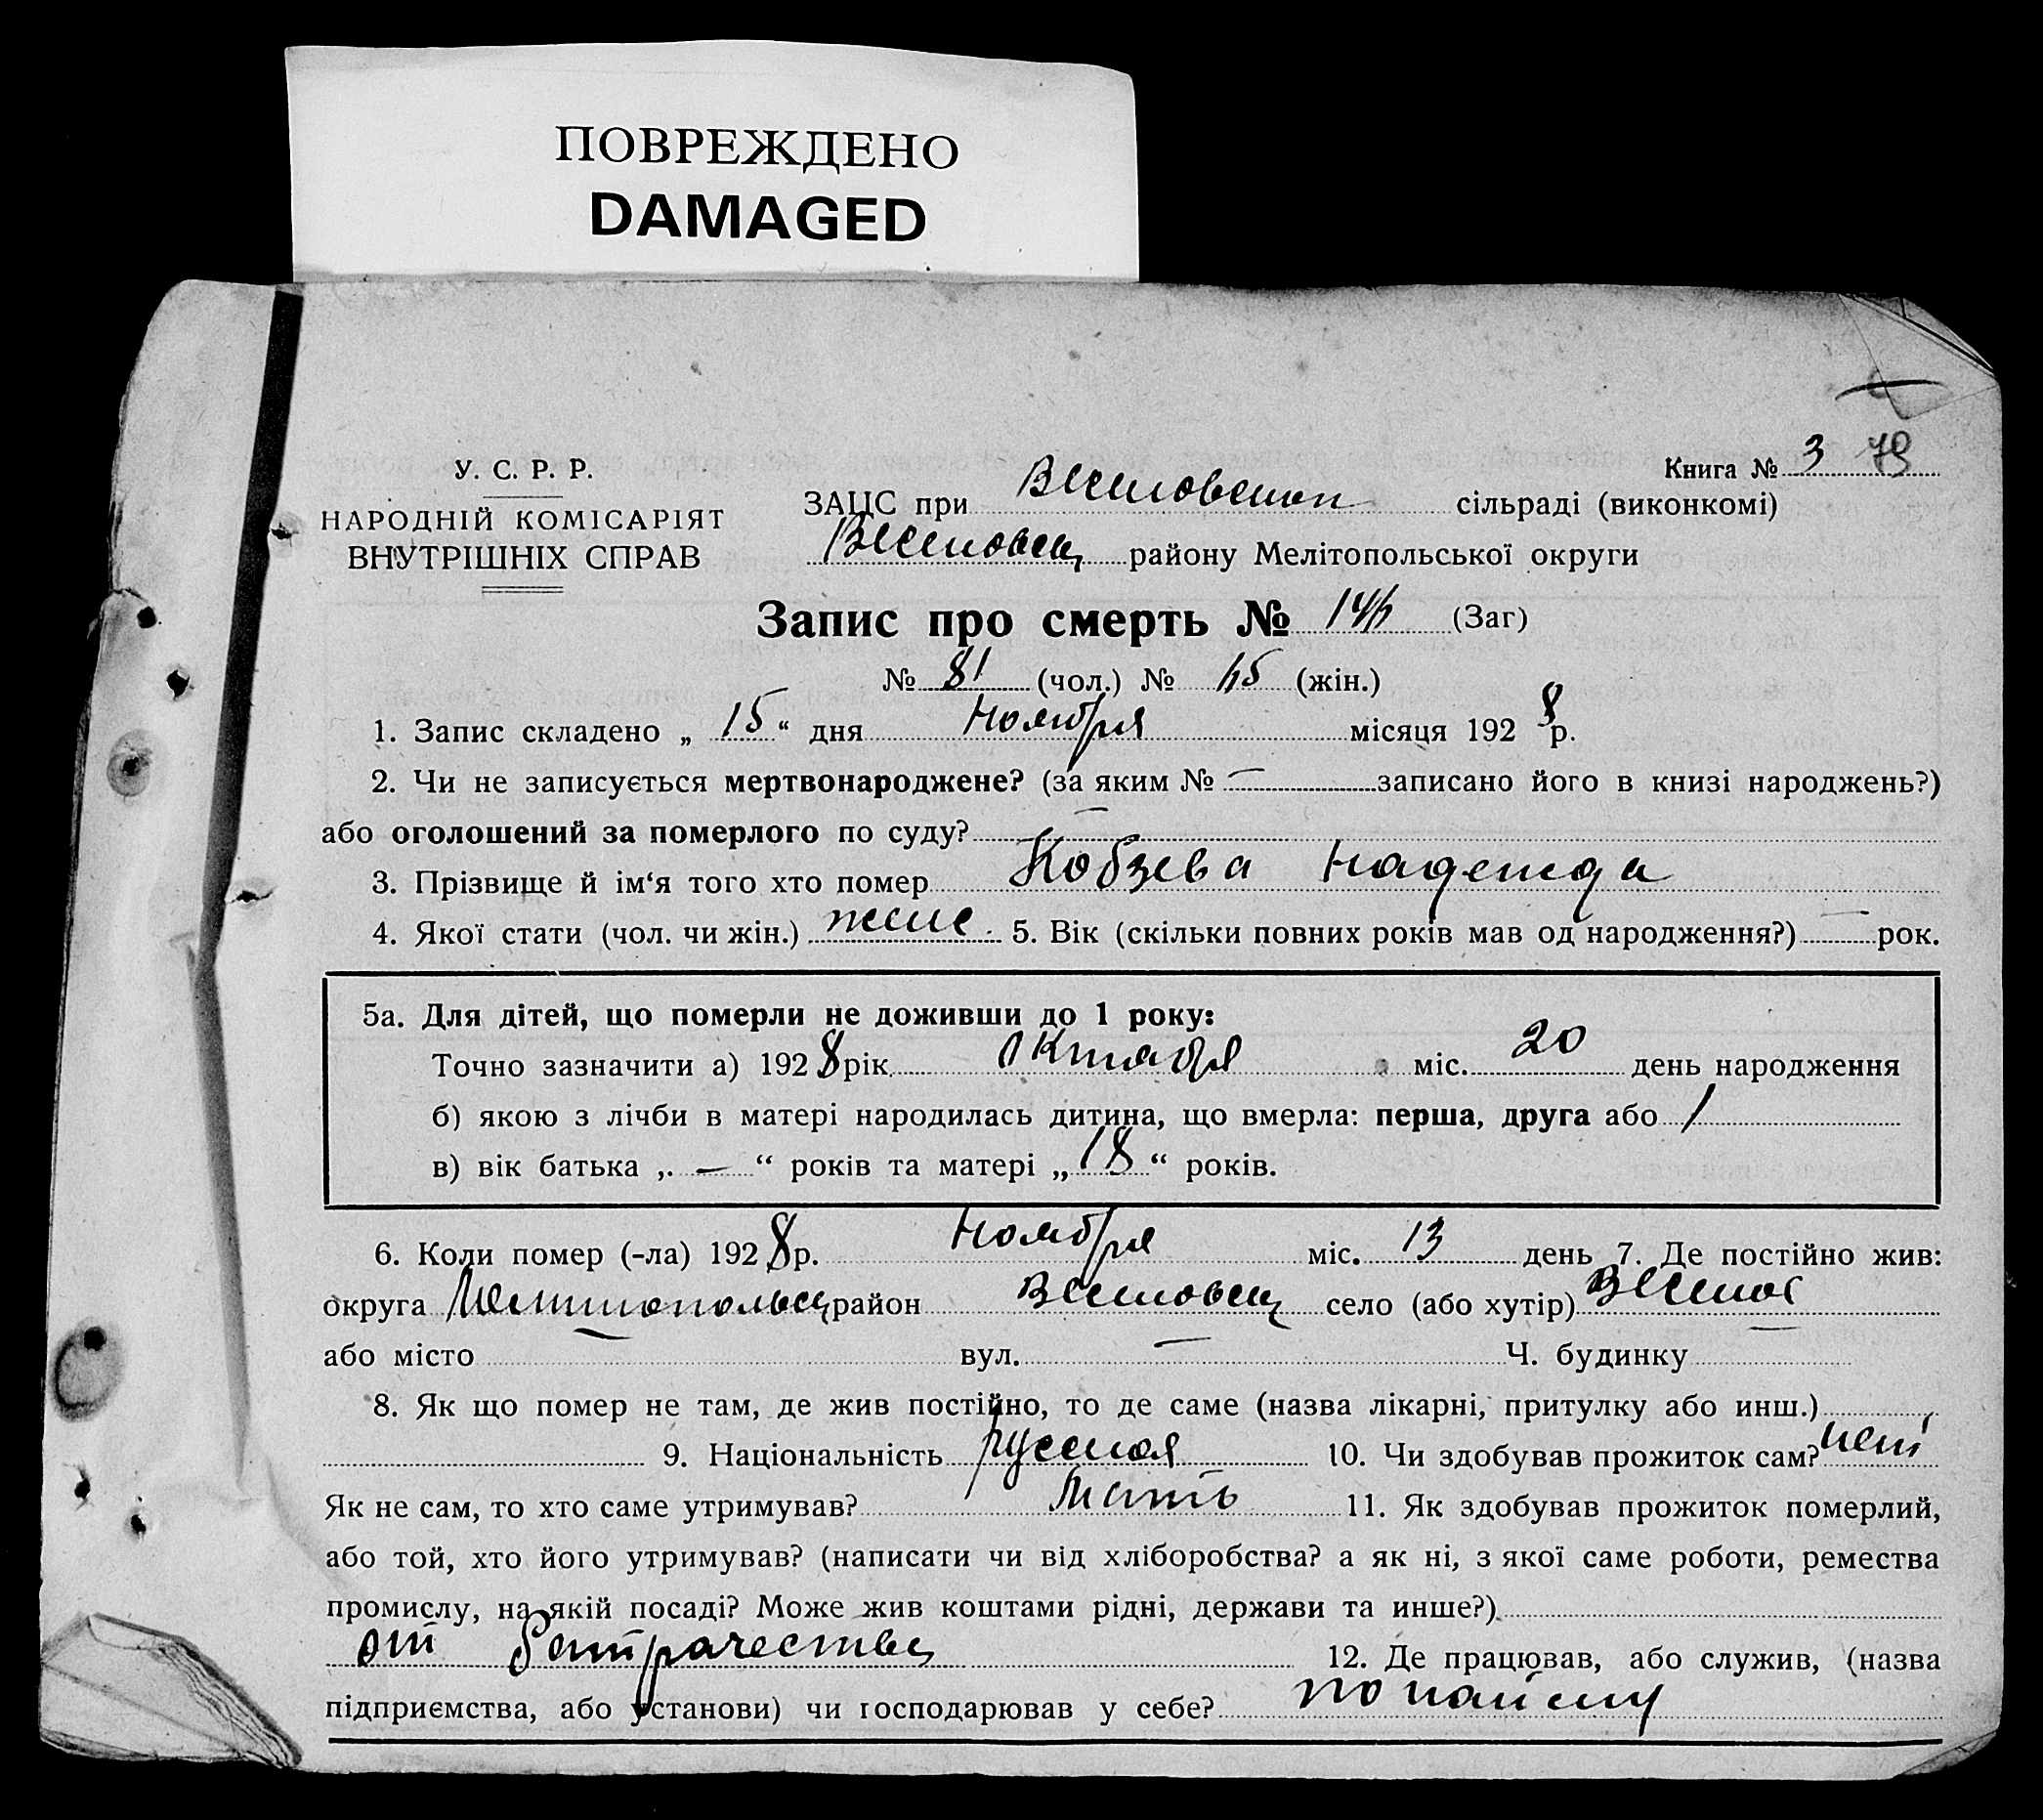 ПОВРЕЖДЕНО
DAMAGED
Книга № 3 79
У. С. Р. Р.
НАРОДНІЙ КОМІСАРІЯТ
ВНУТРІШНІХ СПРАВ
ЗАЦС при Веселовском сільраді (виконкомі)
Веселовск района району Мелітопольської округи
Запис про смерть № 146 (Заг)
№ 81 (чол.) № 65 (жін.)
1. Запис складено „ 15 “ дня ноября місяця 1928 р.
2. Чи не записується мертвонароджене? (за яким № — записано його в книзі народжень?)
або оголошений за померлого по суду? —
3. Прізвище й ім‘я того хто помер Кобзева Надежда
4. Якої стати (чол. чи жін.) жене. 5. Вік (скільки повних років мав од народження?) — рок.
5а. Для дітей, що померли не доживши до 1 року:
Точно зазначити а) 1928 рік. октября міс. 20 день народження
б) якою з лічби в матері народилась дитина, що вмерла: перша, друга або 1
в) вік батька „ — “ років та матері „ 18 “ років.
6. Коли помер (-ла) 1928 р. ноября міс. 13 день 7. Де постійно жив:
округа Мелитопольск район Веселовск село (або хутір) Веселое
або місто — вул. — Ч. будинку —
8. Як що помер не там, де жив постійно, то де саме (назва лікарні, притулку або инш.)
9. Національність русская 10. Чи здобував прожиток сам? нет
Як не сам, то хто саме утримував? Мать 11. Як здобував прожиток померлий,
або той, хто його утримував? (написати чи від хліборобства? а як ні, з якої саме роботи, ремества
промислу, на якій посаді? Може жив коштами рідні, держави та инше?)
от батрачества 12. Де працював, або служив, (назва
підприємства, або установи) чи господарював у себе? по найму